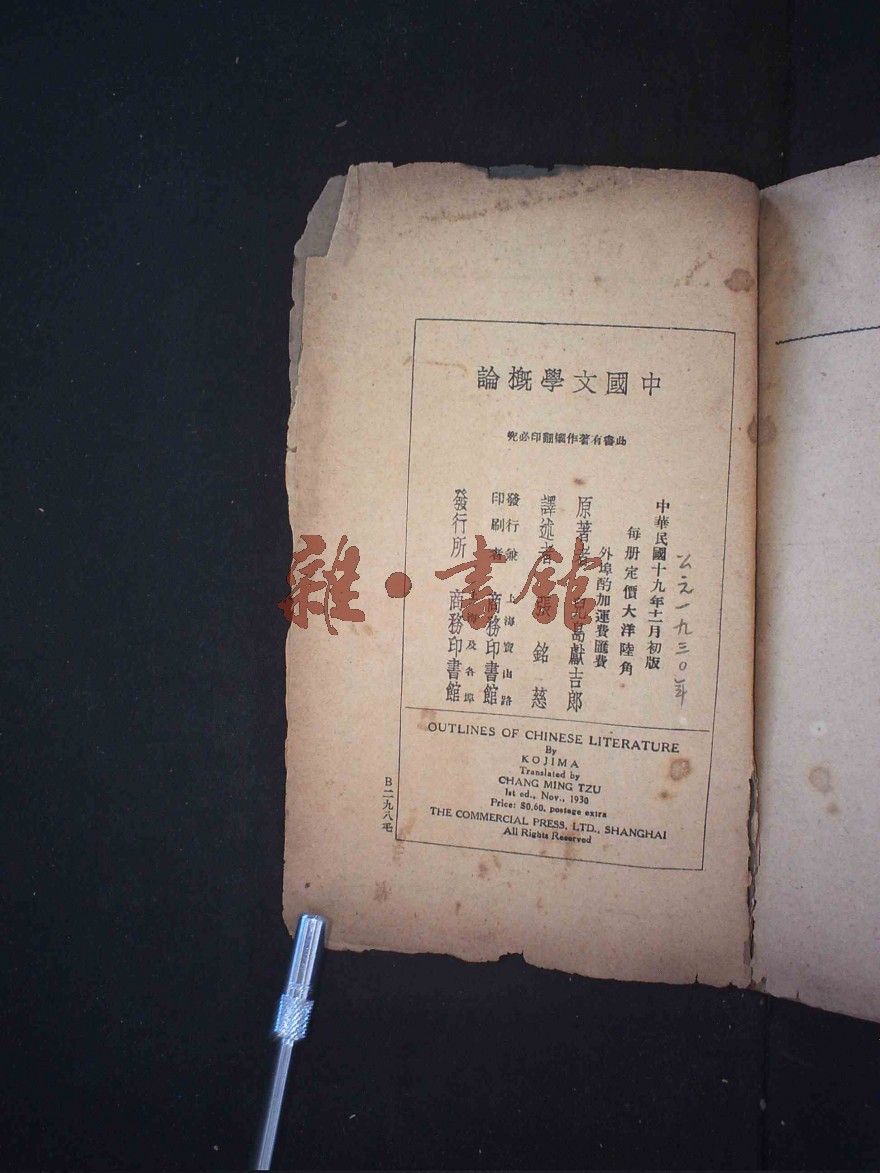 中國文學概論
此書有著作權翻印必究
公元一九三〇年
中華民國十九年十一月初版
每册定價大洋陸角
外埠酌加運費匯費
原著者 兒島獻吉郎
譯述者 張銘慈
發行兼印刷者 上海寶山路 商務印書館
發行所 上海及各埠 商務印書館
OUTLINES OF CHINESE LITERATURE
By
KOJIMA
Translated by
CHANG MING TZU
1st ed., Nov., 1930
Price: $0.60, postage extra
THE COMMERCIAL PRESS, LTD., SHANGHAI
All Rights Reserved
B二九八毛
雜·書館